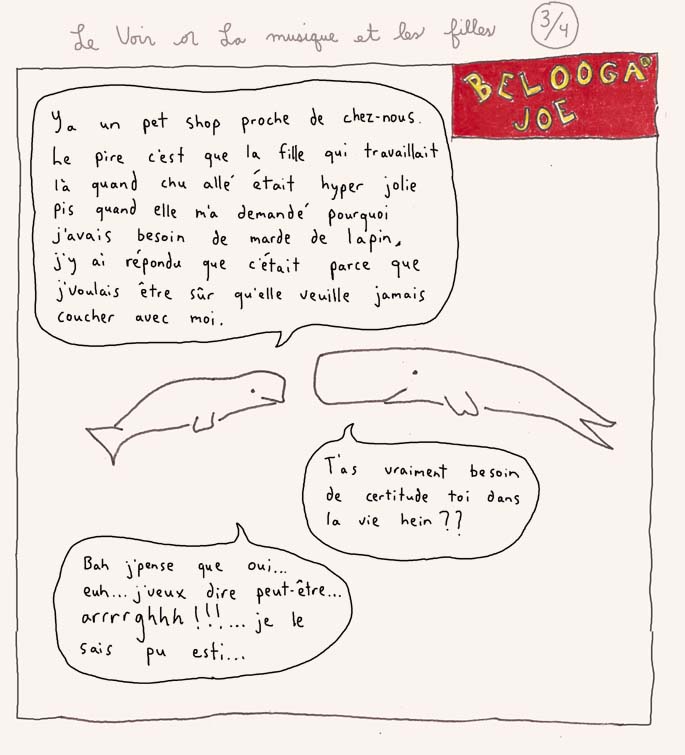 Le Voir or La musique et les filles 3/4
BELOOGA
JOE
Ya un pet shop proche de chez-nous.
Le pire c'est que la fille qui travaillait
là quand chu allé était hyper jolie
pis quand elle m'a demandé pourquoi
j'avais besoin de marde de lapin,
j'y ai répondu que c'était parce que
j'voulais être sûr qu'elle veuille jamais
coucher avec moi.
T'as vraiment besoin
de certitude toi dans
la vie hein??
Bah j'pense que oui...
euh... j'veux dire peut-être...
arrrrghhh!!!... je le
sais pu esti...